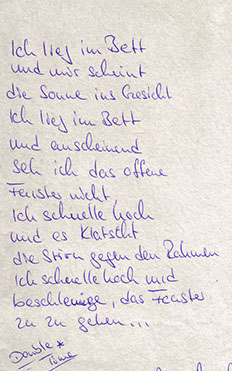 Ich lieg im Bett
und mir scheint
die Sonne ins Gesicht
Ich lieg im Bett
und anscheinend
seh ich das offene
Fenster nicht,
Ich schnelle hoch
und es klatscht
die Stirn gegen den Rahmen
Ich schnelle hoch und
beschleunige, das Fenster
zu zu gehen...
Double*
Time